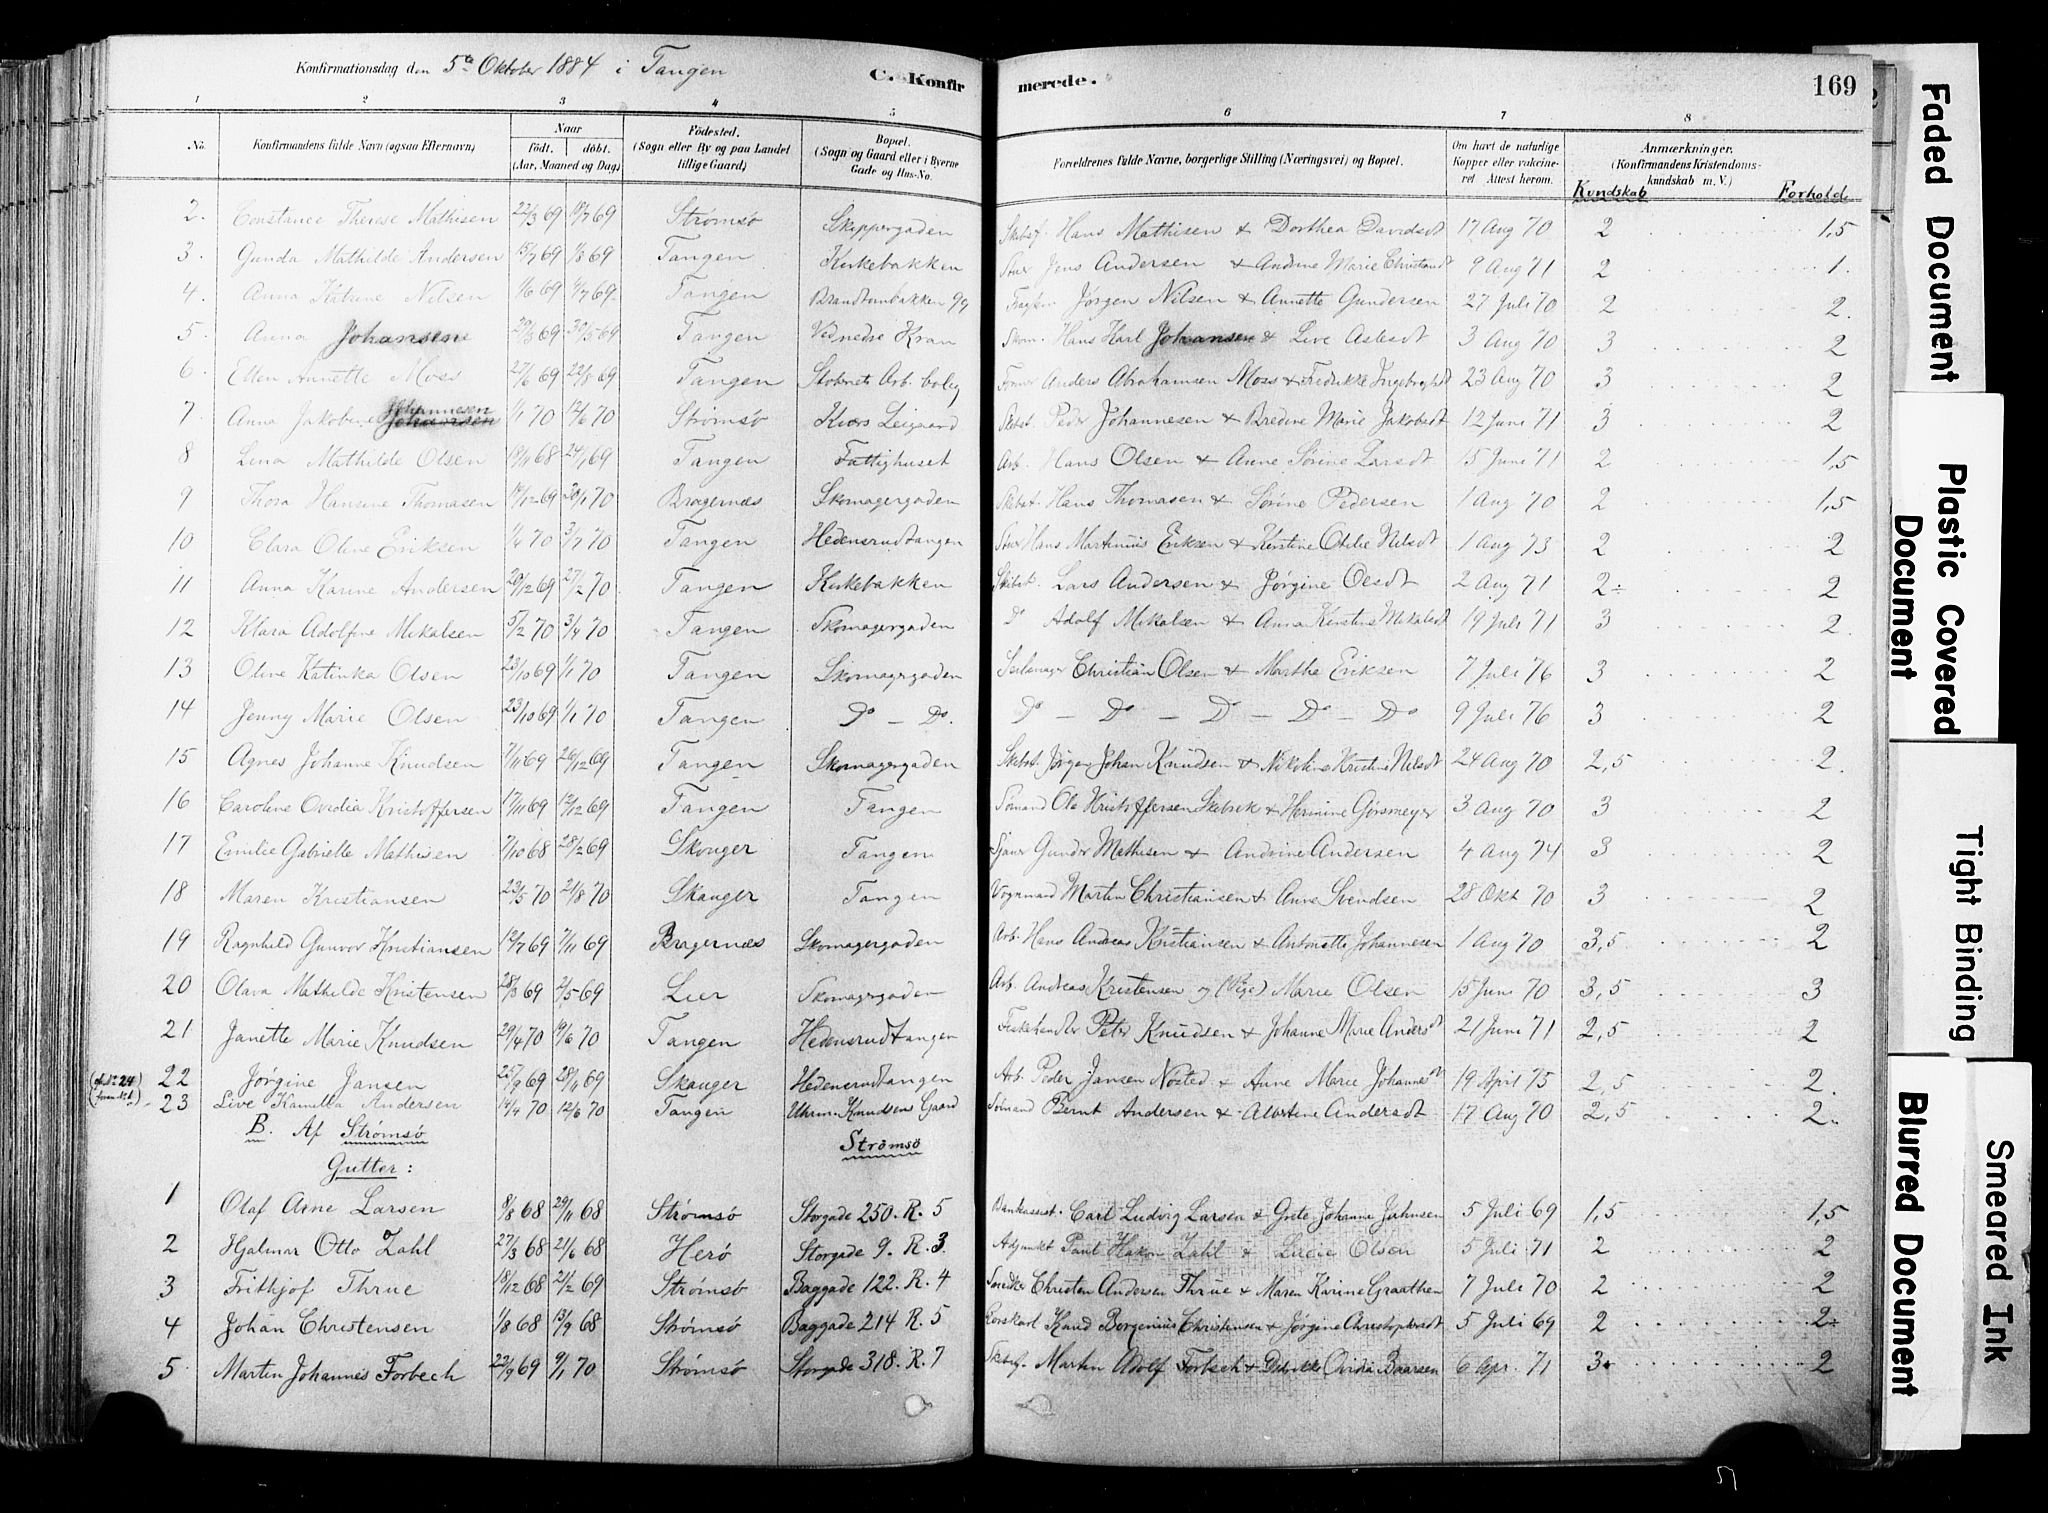 Konfirmationsdag den 5te Oktober 1884 i Tangen
C. Konfirmerede.
169
1 2 3 4 5 6 7 8
No. Konfirmandens fulde Navn (ogsaa Efternavn) Naar født. døbt. (Aar, Maaned og Dag) Fødested. (Sogn eller By og paa Landet tillige Gaard) Bopæl. (Sogn og Gaard eller i Byerne Gade og Hus-No. Forældrenes fulde Navne, borgerlige Stilling (Næringsvei) og Bopæl. Om havt de naturlige Kopper eller vakcineret Attest herom. Anmærkninger. (Konfirmandens Kristendomskundskab m. V.)
Kundskab Forhold
2. Constance Therese Mathisen 22/3 69 19/7 69 Strømsø Skippergaden Skibsf. Hans Mathisen & Dorthea Davidsdt 17 Aug 70 2 1,5
3. Gunda Mathilde Andersen 15/7 69 1/8 69 Tangen Kirkebakken Stuer Jens Andersen & Andrine Marie Christiandt 9 Aug 71 2 1.
4. Anna Katrine Nilsen 1/6 69 4/7 69 Tangen Brandtenbakken 99 Jørgen Nilsen & Annette Gundersen 27 Juli 70 2 2.
5. Anna Johansen 29/3 69 30/5 69 Tangen Ved nedre Kran Skom. Hans Karl Johansen & Live Asbsdt 3 Aug 70 3 2
6. Ellen Annette Moss 27/6 69 22/8 69 Tangen Stobriets Arb. bolig Former Anders Abrahamsen Moss & Fredrikke Ingebrigtdt 23 Aug 70 3 2
7. Anna Jakobine Johannesen 1/1 70 12/6 70 Strømsø Kiøs Leigaard Skibst. Peder Johannesen & Bredine Marie Jakobsdt 12 Juni 71 3 2
8 Lina Mathilde Olsen 19/11 68 24/1 69 Tangen Fattighuset Arb. Hans Olsen & Anne Sørine Larsdt 15 Juni 71 2 1,5
9 Thora Hansine Thomasen 19/12 69 30/1 70 Bragernæs Skomagergaden Skibst. Hans Thomasen & Sørine Pedersen 1 Aug 70 2 1,5
10 Clara Oline Eriksen 1/4 70 3/7 70 Tangen Hedensrudtangen Stuer Hans Martinius Eriksen & Kirstine Otilie Nilsdt 1 Aug 73 2 2
11 Anna Karine Andersen 20/12 69 27/2 70 Tangen Kirkebakken Skibst. Lars Andersen & Jørgine Olsdt 2 Aug 71 2÷ 2
12 Klara Adolfine Mikalsen 5/2 70 3/4 70 Tangen Skomagergaden Do Adolf Mikalsen & Anna Kirstine Mikalsdt 19 Juli 71 3 2.
13 Oline Katinka Olsen 23/10 69 1/1 70 Tangen Skomagergaden Seilmager Christian Olsen & Marthe Eriksen 7 Juli 76 3 2
14 Jenny Marie Olsen 23/10 69 1/1 70 Tangen Do – Do. Do – Do – Do – Do – Do 9 Juli 76 3 2
15 Agnes Johanne Knudsen 7/11 69 26/12 69 Tangen Skomagergaden Skibst. Jørgen Johan Knudsen & Nikoline Kristine Nilsdt 24 Aug 70 2,5 2.
16 Caroline Ovidia Kristoffersen 17/11 69 12/12 69 Tangen Tangen Sømand Ole Kristoffersen Skibvik & Hermine Gørsmeyer 3 Aug 70 3 2
17 Emilie Gabrielle Mathisen 7/10 68 28/2 69 Skouger Tangen Sjauer Gunder Mathisen & Andrine Andersen 4 Aug 74 3 2
18 Maren Kristiansen 23/5 70 21/8 70 Skauger Tangen Vognmand Martin Christiansen & Anne Svendsen 28 Okt 70 3 2
19 Ragnhild Gunvor Kristiansen 12/7 69 7/11 69 Bragernæs Skomagergaden Arb. Hans Andreas Kristiansen & Antonette Johannesen 1 Aug 70 3,5 2
20 Olava Mathilde Kristensen 28/3 69 2/5 69 Lier Skomagergaden Arb. Andreas Kristensen og (Pige) Marie Olsen 15 Juni 70 3,5 3
21 Janette Marie Knudsen 29/4 70 19/6 70 Tangen Hedensrudtangen Fiskehandler Peter Knudsen & Johanne Marie Andersdt 21 Juni 71 2,5 2
22 Jørgine Jansen 25/9 69 28/11 69 Skauger Hedensrudtangen Arb. Peder Jansen Nøsted & Anne Marie Johannesdt 19 April 75 2,5 2.
(No 24 foran No 1.) 23 Live Kamilla Andersen 14/4 70 12/6 70 Tangen Uhrm. Knudsens Gaard Sømand Bernt Andersen & Albertine Andersdt 17 Aug 70 2,5 2.
B. Af Strømsø Strømsö
Gutter:
1 Olaf Arne Larsen 8/8 68 29/11 68 Strømsø Storgade 250. R. 5 Bankassist. Carl Ludvig Larsen & Grete Johanne Johnsen 5 Juli 69 1,5 1,5
2 Hjalmar Otto Zahl 27/3 68 21/6 68 Herø Storgade 9. R. 3. Adjunkt Paul Hakon Zahl & Lucie Olsen 5 Juli 71 2 2
3 Frithjof Thrue 18/12 68 21/2 69 Strømsø Baggade 122. R. 4 Snedker Christen Andersen Thrue & Maren Karine Graathen 7 Juli 70 2 2
4 Johan Christensen 1/8 68 13/9 68 Strømsø Baggade 214 R. 5 Rorskarl Knud Borgenius Christensen & Jørgine Christophersdt 5 Juli 69 2 2÷
5 Martin Johannes Forbech 22/9 69 9/1 70 Strømsø Storgade 318. R. 7 Skibsf. Martin Adolf Forbech & Didrikke Ovidia Baarsen 6 Apr. 71 3 2
Faded Document
Plastic Covered Document
Tight Binding
Blurred Document
Smeared Ink